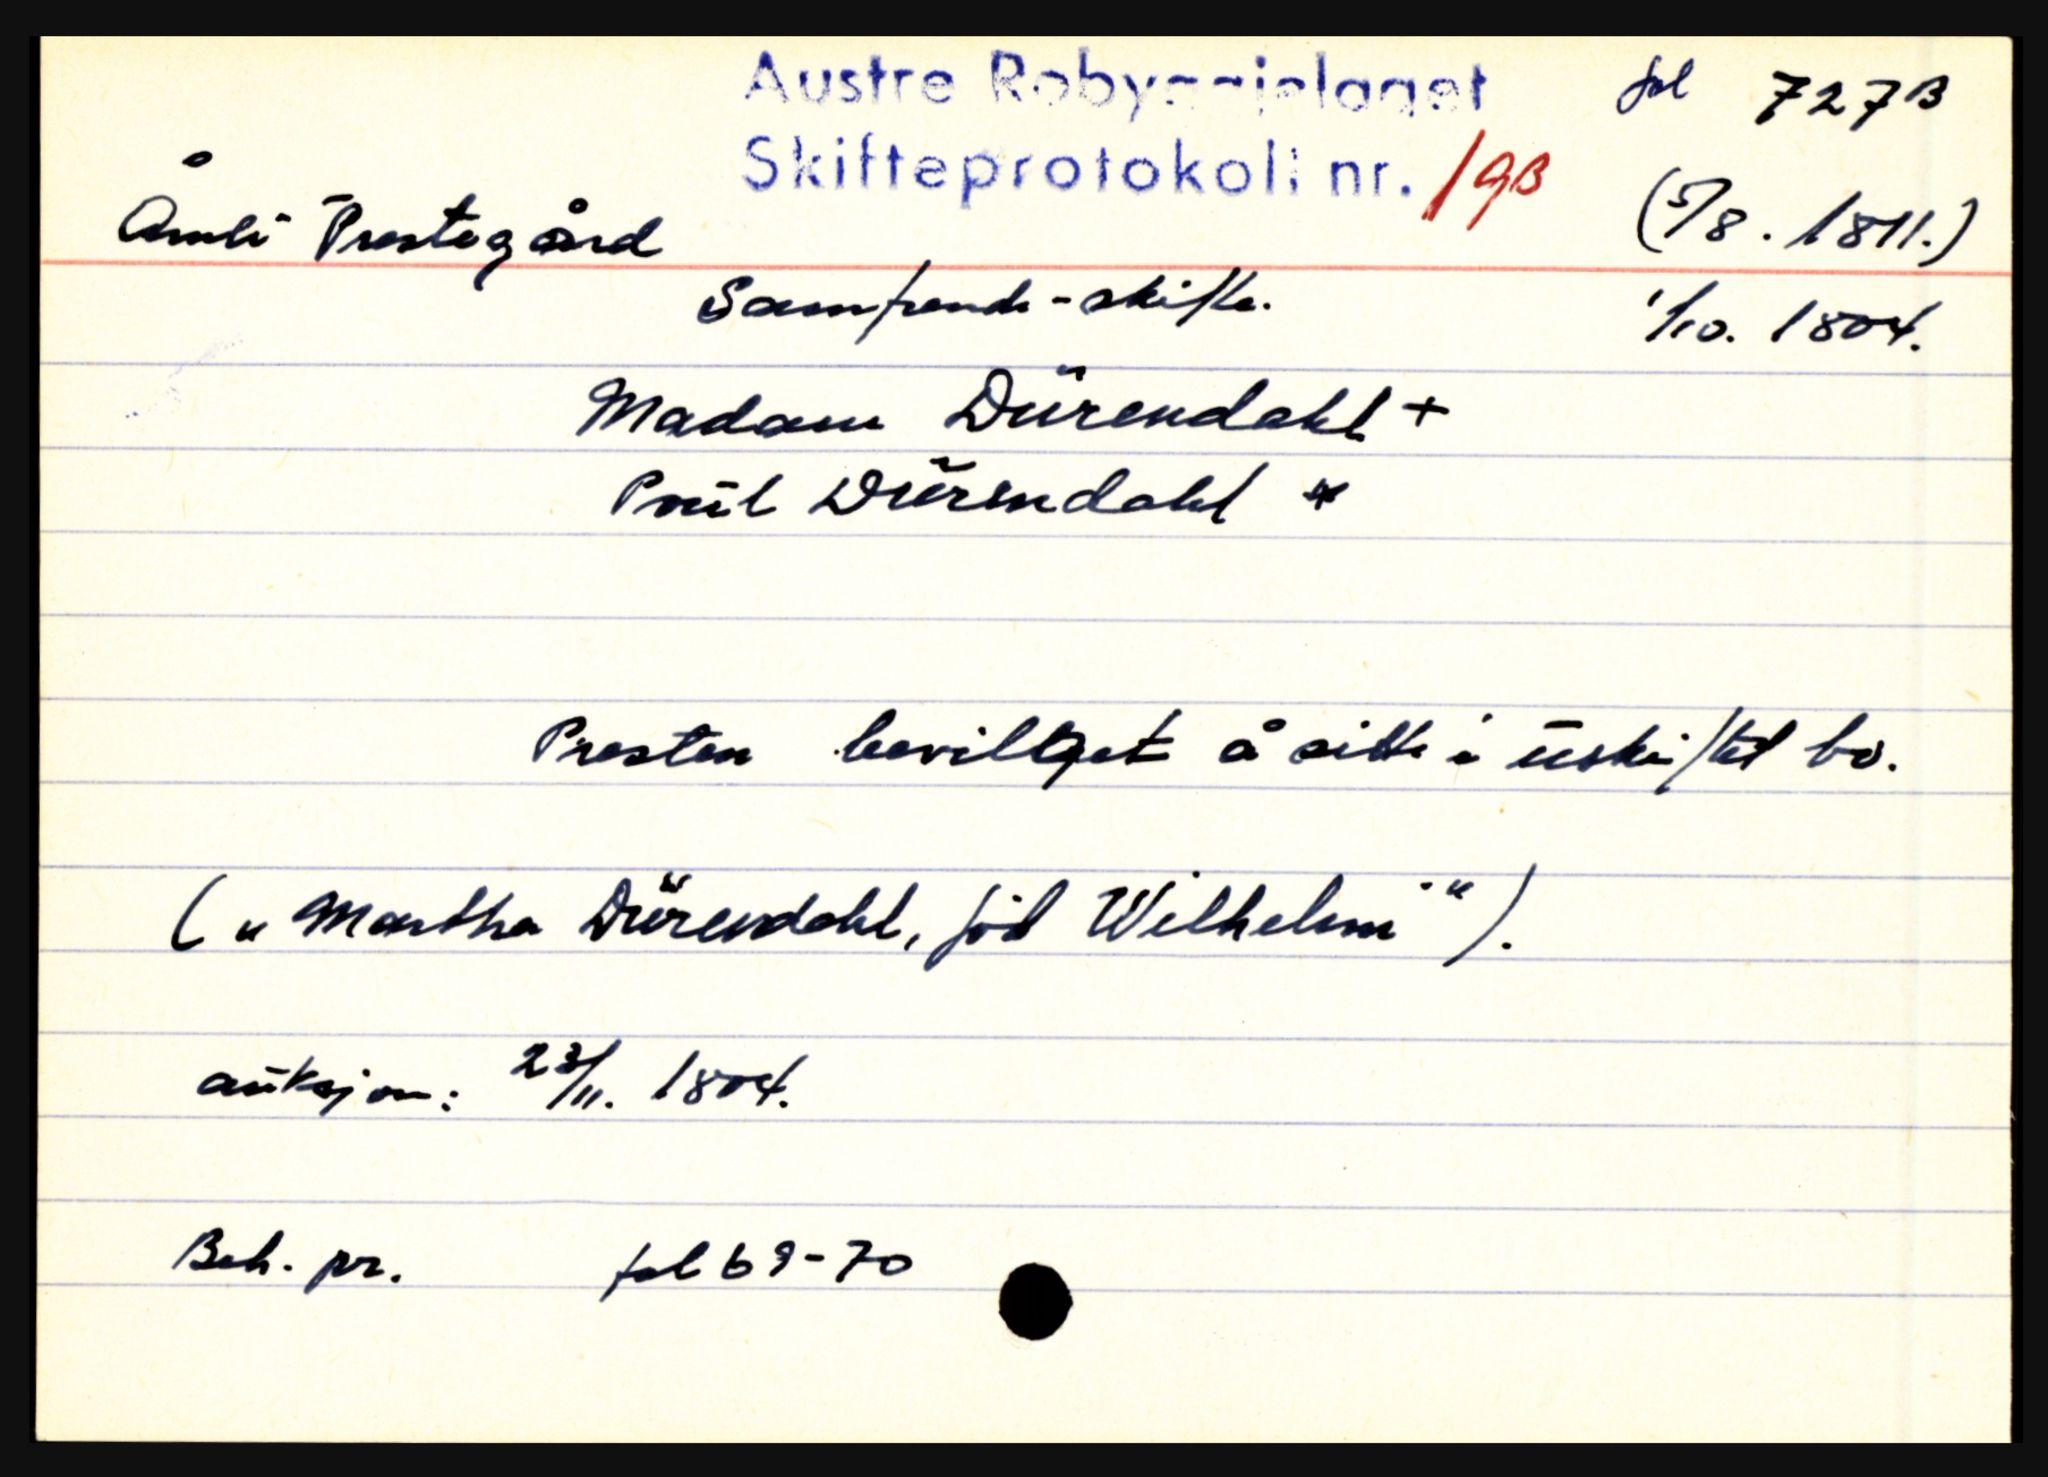 Austre Robyggjelaget fol 727B
Skifteprotokoll nr. 19B
Åmli Prestegård (5/8. 1811.)
Samfrende-skifte. 1/10. 1804.
Madam Dürendahl +
Poul Dürendahl *
Presten bevillget å sitte i uskiftet bo.
(„Martha Dürendahl, föd Wilhelmi“).
auksjon: 23/11. 1804.
Beh. pr. fol 69-70